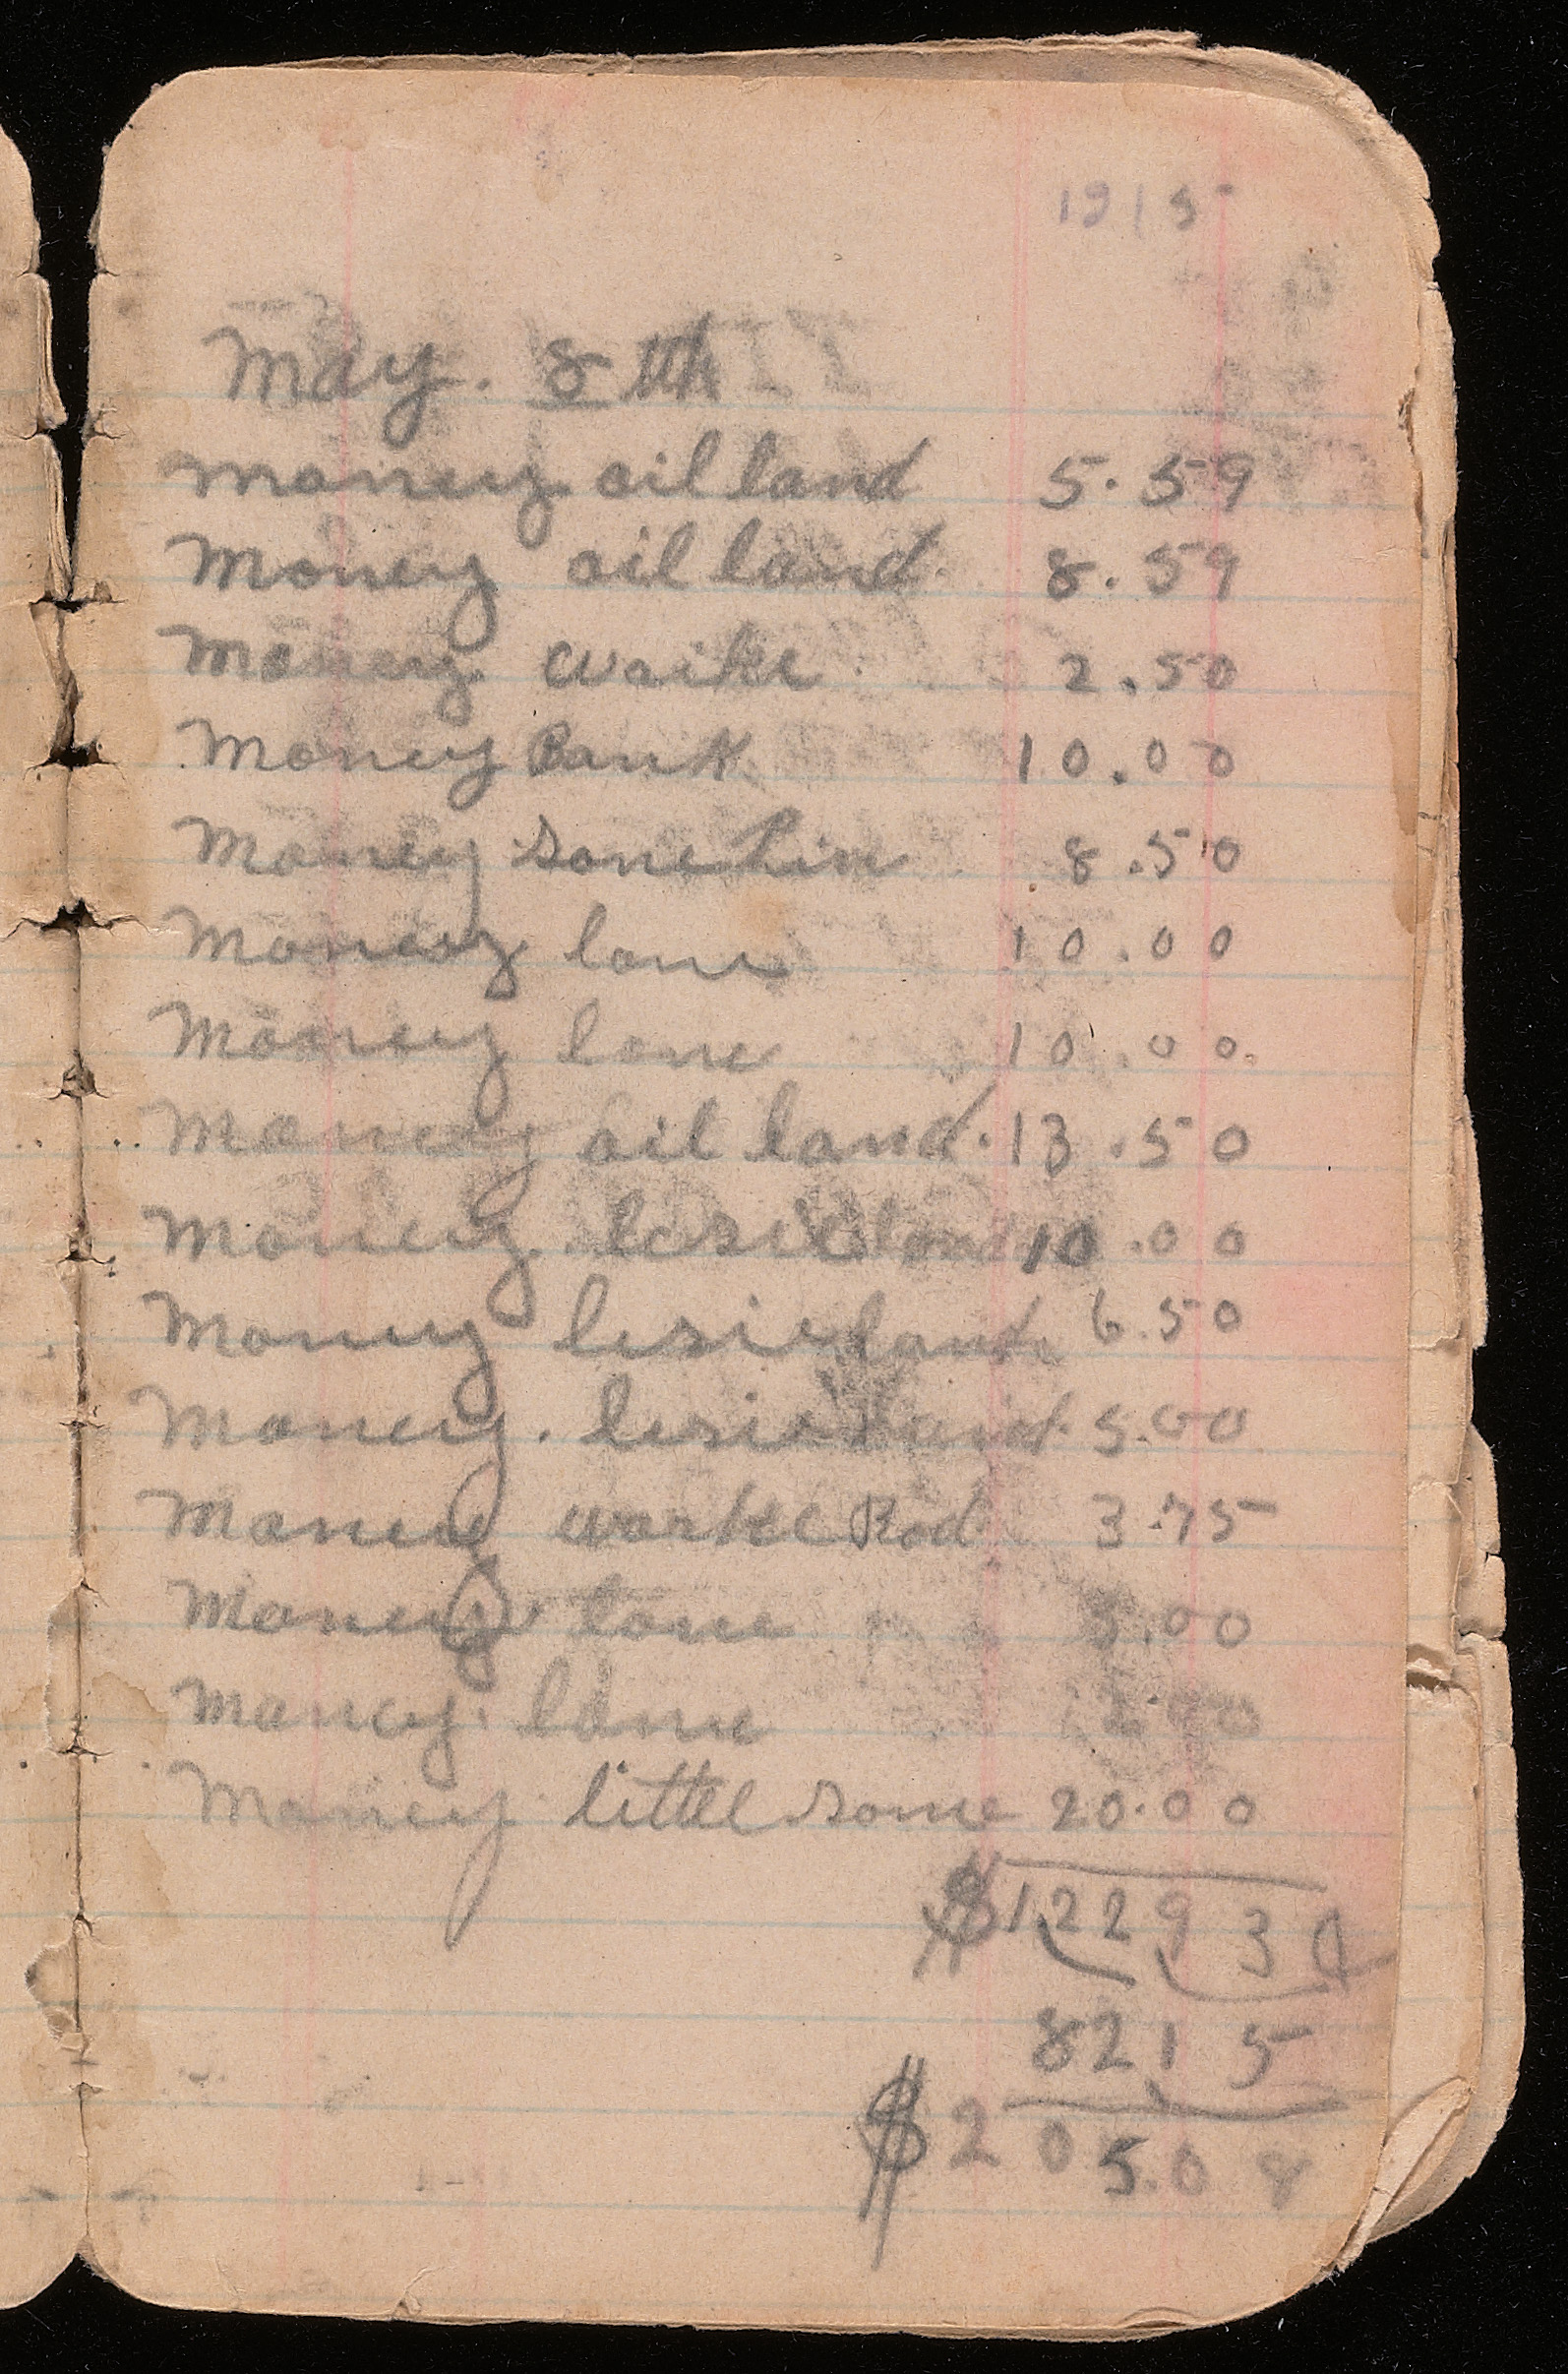 1915
May. 8th
Money oil land 5.59
Money oil land 8.59
Money. waike 2.50
Money Bank 10.00
Money sone hin 8.50
Money lone 10.00
Money lone 10.00
Money oil land. 13.50
Money. lesie land 10.00
Money lesie land 6.50
Money. lesie land. 5.00
Money worke Rod 3.75
Money lone 5.00
Money. lone
Money. little some 20.00
$122930
8215
$205.08